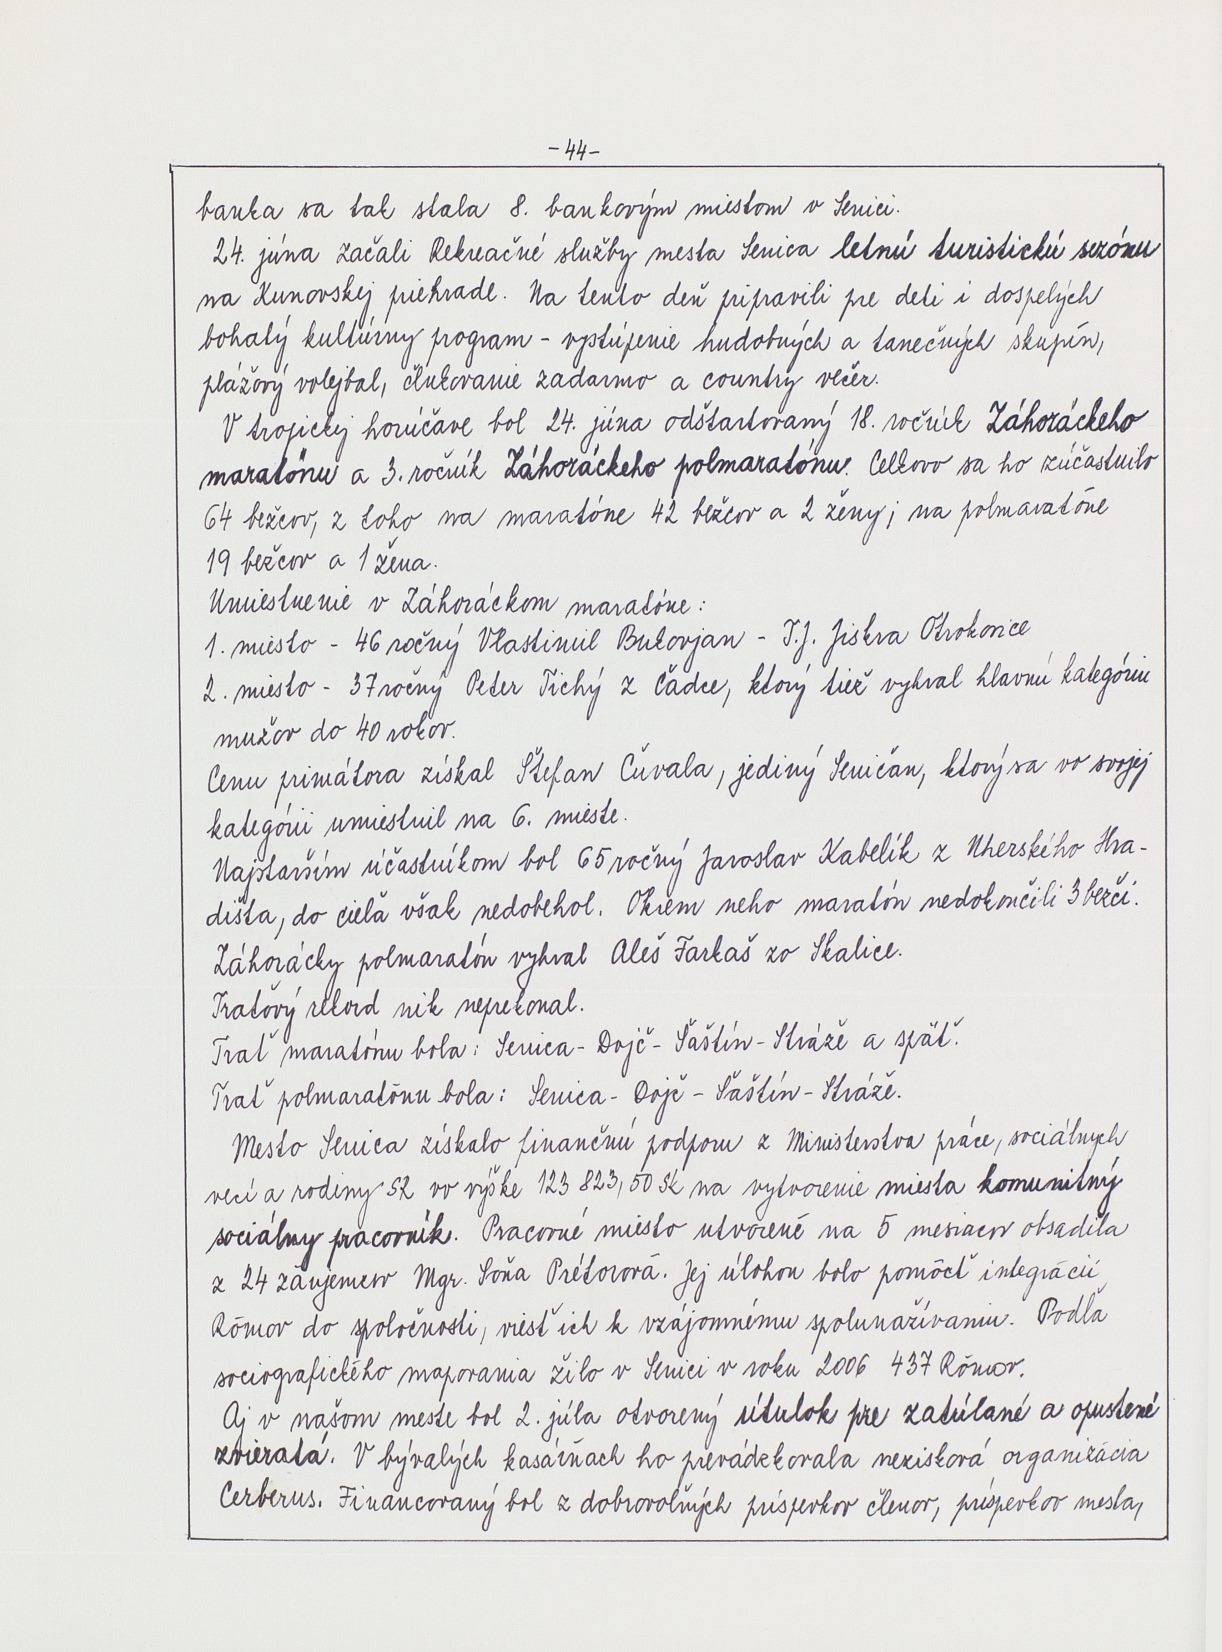 -44-
banka sa tak stala 8. bankovým miestom v Senici.
24. júna začali Rekreačné služby mesta Senica letnú turistickú sezónu
na Kunovskej priehrade. Na tento deň pripravili pre deti i dospelých
bohatý kultúrny program - vystúpenie hudobných a tanečných skupín,
plážový volejbal, člnkovanie zadarmo a country večer.
V tropickej horúčave bol 24. júna odštartovaný 18. ročník Záhoráckeho
maratónu a 3. ročník Záhoráckeho polmaratónu. Celkovo sa ho zúčastnilo
64 bežcov, z toho na maratóne 42 bežcov a 2 ženy; na polmaratóne
19 bežcov a 1 žena.
Umiestnenie v Záhoráckom maratóne:
1. miesto - 46 ročný Vlastimil Bukovjan - T.J. Jiskra Otrokovice
2. miesto - 37 ročný Peter Tichý z Čadce, ktorý tiež vyhral hlavnú kategóriu
mužov do 40 rokov.
Cenu primátora získal Štefan Čuvala, jediný Seničan, ktorý sa vo svojej
kategórii umiestnil na 6. mieste.
Najstarším účastníkom bol 65 ročný Jaroslav Kabelík z Uherského Hra-
dišťa, do cieľa však nedobehol. Okrem neho maratón nedokončili 3 bežci.
Záhorácky polmaratón vyhral Aleš Farkaš zo Skalice.
Traťový rekord nik neprekonal.
Trať maratónu bola: Senica - Dojč - Šaštín - Stráže a späť.
Trať polmaratónu bola: Senica - Dojč - Šaštín - Stráže.
Mesto Senica získalo finančnú podporu z Ministerstva práce, sociálnych
vecí a rodiny SR vo výške 123 823,50 Sk na vytvorenie miesta komunitný
sociálny pracovník. Pracovné miesto utvorené na 5 mesiacov obsadila
z 24 záujemcov Mgr. Soňa Prétorová. Jej úlohou bolo pomôcť integrácii
Rómov do spoločnosti, viesť ich k vzájomnému spolunažívaniu. Podľa
sociografického mapovania žilo v Senici v roku 2006 437 Rómov.
Aj v našom meste bol 2. júla otvorený útulok pre zatúlané a opustené
zvieratá. V bývalých kasárňach ho prevádzkovala nezisková organizácia
Cerberus. Financovaný bol z dobrovoľných príspevkov členov, príspevkov mesta,